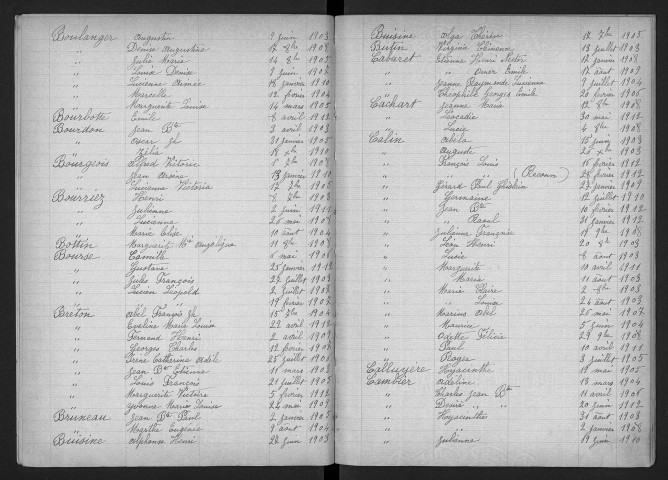 Boulanger Augustin 9 juin 1903
" Denise Augustine 17 8bre 1908
" Julie Marie 14 8bre 1905
" Luise Denise 9 juin 1907
" Lucienne Aimée 18 janvier 1910
" Marcelle 12 février 1904
" Marguerite Louise 14 mars 1905
Bourbotte Emile 8 avril 1912
Bourdon Jean Bte 3 avril 1903
" Oscar Jh 31 janvier 1905
" Zélia
Bourgeois Alfred Victorie 1903
" Jean Arsène 13 janvier 1910
" Lucienne Victoria 17 1905
Bourriez Henri 8 1903
" Julienne 2 juin
" Lucienne 26 mai 1908
" Marie Elise 10 août 1904
Bottin Marguerite Mie Angélique 11 8bre 1908
Bourse Camille 6 mai
" Gustave 25 janvier 1912
" Jules François 27 juillet 1903
" Lucien Léopold 2 juillet 1903
" " 19 février 1907
Breton Abel François Jh 15 7bre 1904
" Eveline Marie Louise 29 avril 1912
" Fernand Henri 2 avril 1909
" Georges Charles 12 février 1907
" Irène Catherine Adèle 25 juillet 1903
" Jean Bte Etienne 11 mars 1903
" Louis François 21 juillet 1905
" Marguerite Victoire 5 février 1912
" Yvonne Marie Louise 22 mai 1907
Bruneau Jean Bte Paul 2 janvier 1905
" Marthe Eugénie 9 août 1904
Buisine Alphonse Henri 22 juin 1903
Buisine Olga Thérèse 12 7bre 1905
Butin Virginie Clémence 13 juillet 1903
Cabaret Etienne Henri Nestor 17 janvier 1908
" " Omer Emile 17 août 1909
" Jeanne Raymonde Lucienne 9 juillet 1904
" Théophile Georges Emile 26 février 1905
Cachart Jeanne Marie 12 8bre 1908
" Léocadie 30 mai 1912
" Lucie 4 8bre 1908
Calin Abela 15 juin 1903
" Auguste 1903
" François Louis 15 février 1912
" " " (Reconn) 28 février 1912
" Gérard Paul Ghislain 27 janvier 1909
" Germaine 12 juillet 1910
" Jean Bte 10 février 1912
" " Raoul 31 janvier 1912
" Julienne Françoise 19 9bre 1908
" Léon Henri 20 8bre 1903
" Lucie 8 août 1903
" Marguerite 10 avril 1911
" Maria 11 août 1903
" Marie Claire 2 8bre 1903
" " Louise 24 août 1903
" Marius Abel 26 mai 1907
" Maurice 5 juin 1904
" Odette Félicie 29 9bre 1908
" Paul 10 avril 1911
" Roger 3 juillet 1905
Calluyère Hyacinthe 12 mai 1905
Cambier Adeline 13 mars 1904
" Charles Jean Bte 11 avril 1905
" Désiré " " 20 juin 1912
" Hyacinthe 31 août 1903
" " 2 janvier 1908
" Julienne 19 juin 1910